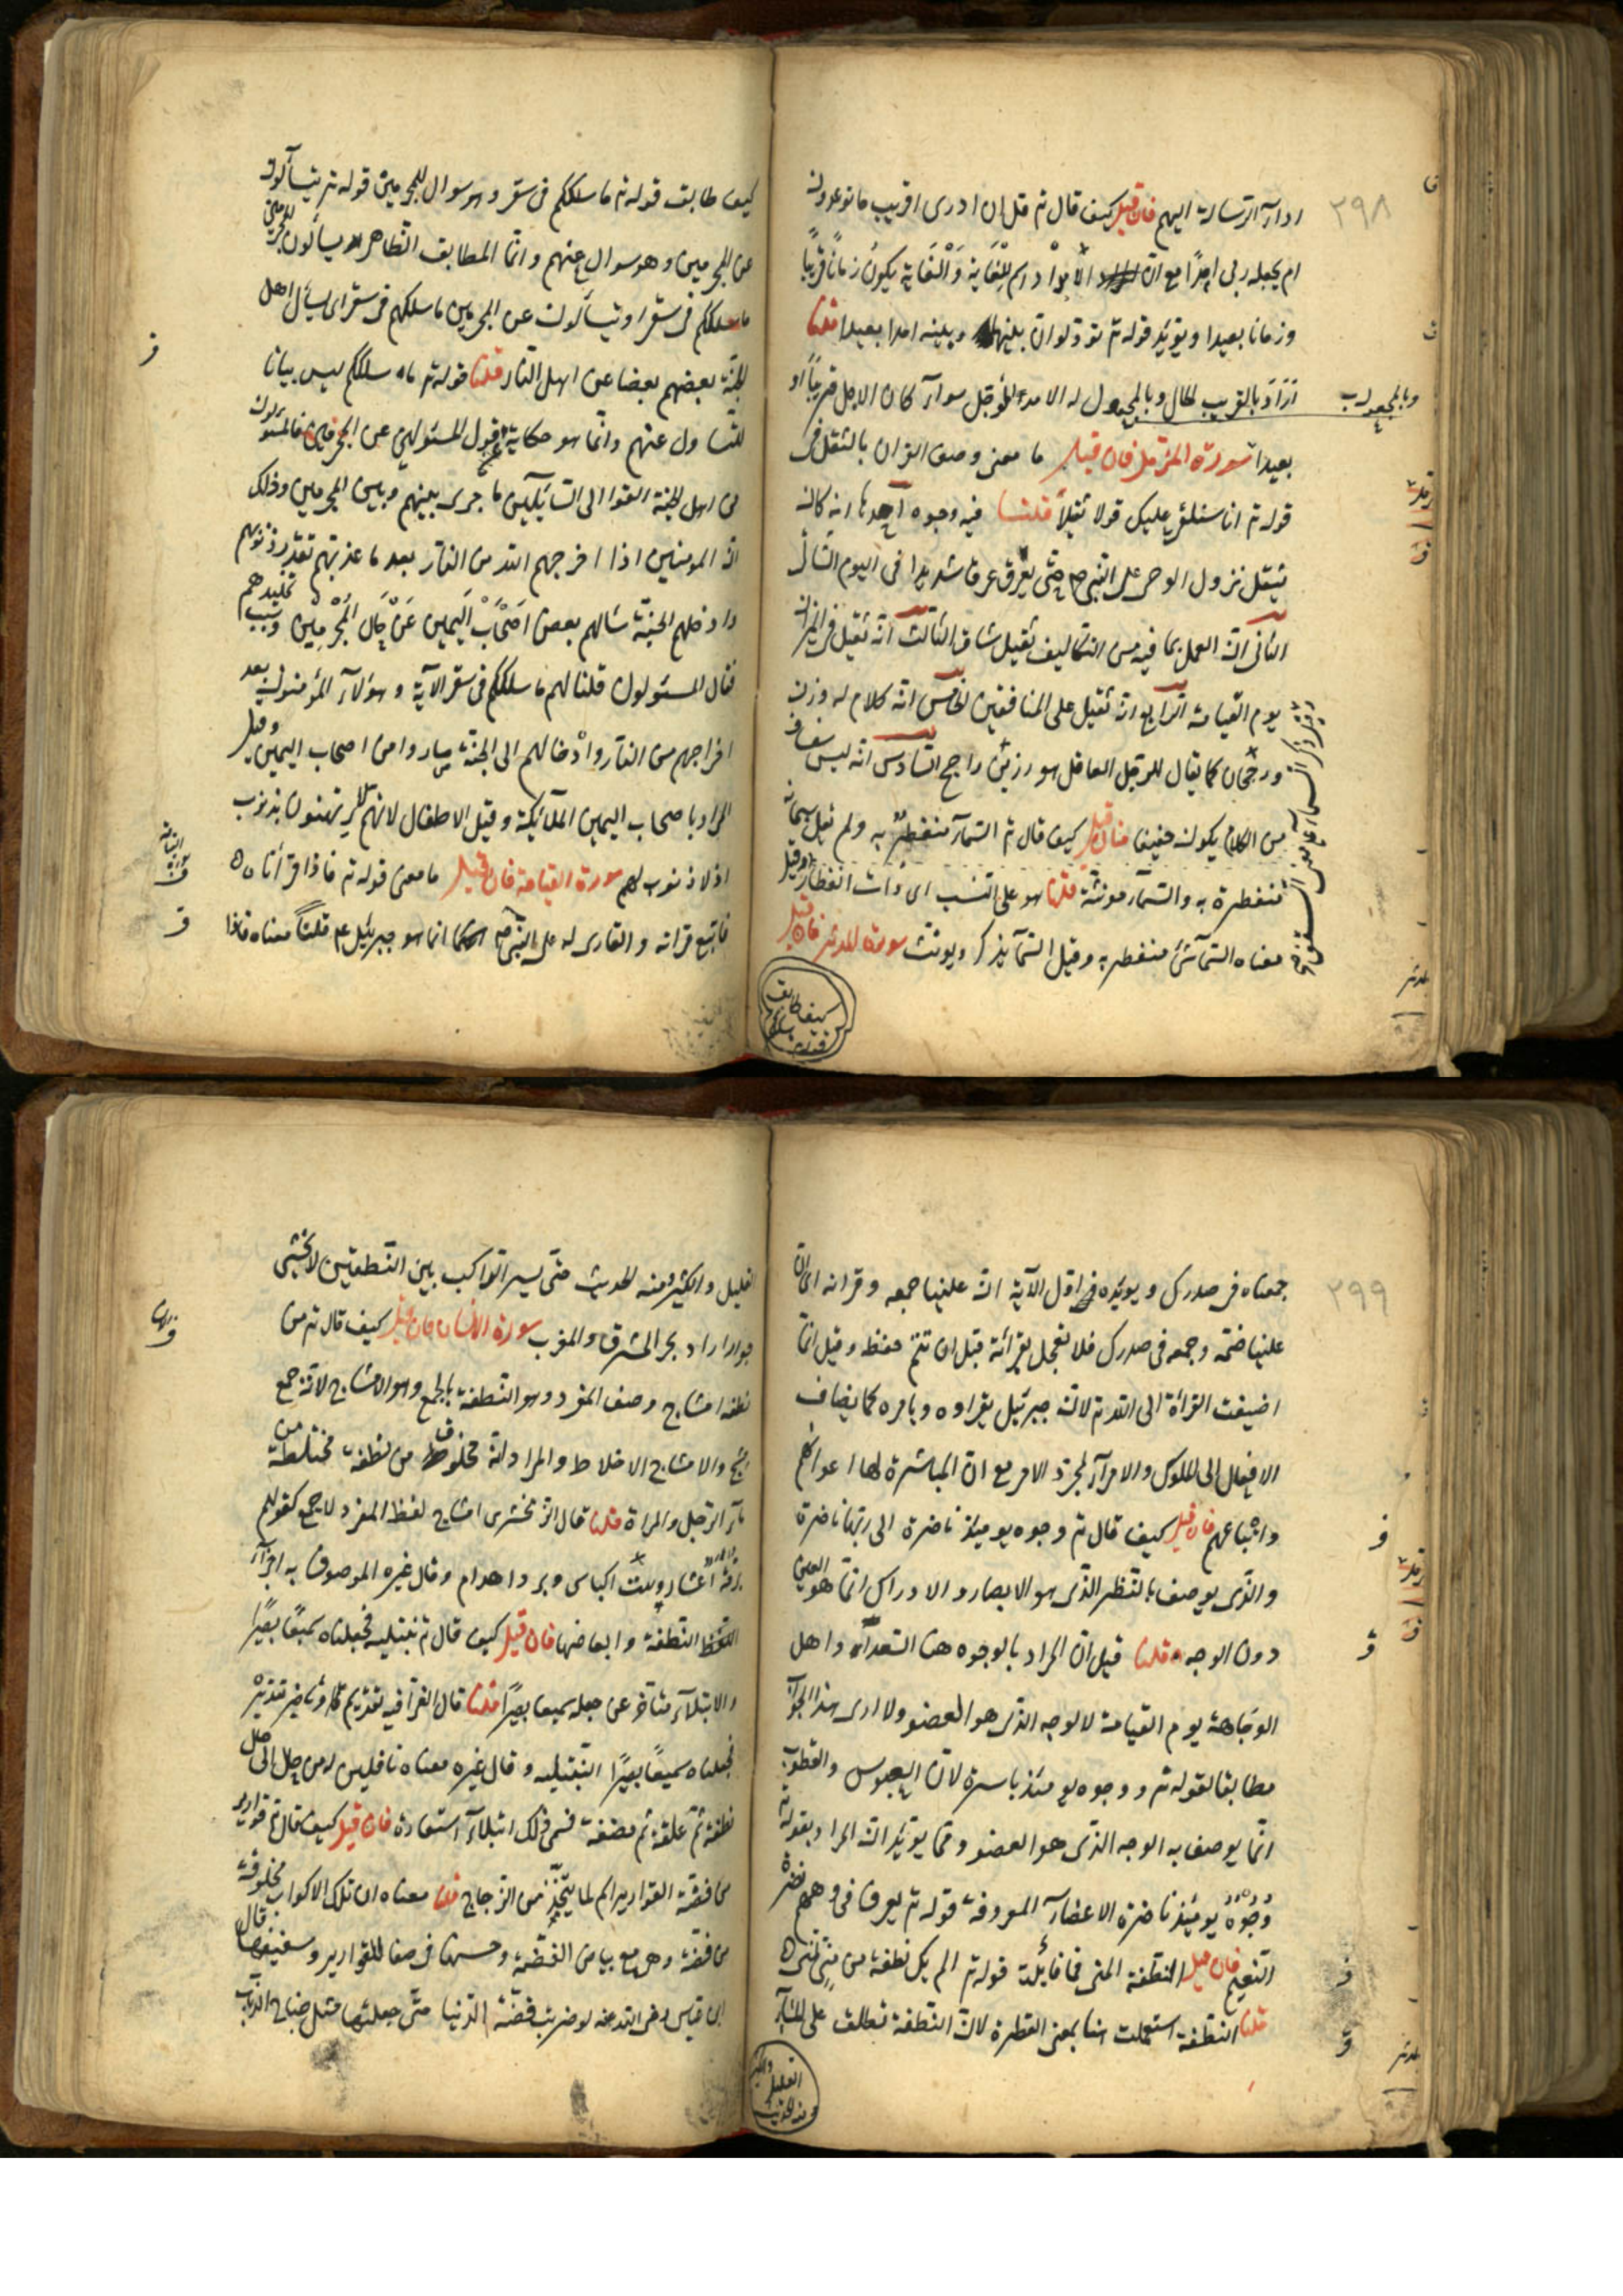 ٢٩٨
ادآء الرسالة اليهم فان قيل كيف قال تم قل ان ادرى اقريب ما توعدون
ام يجعله ربى امدا مع ان الامد اسم للغاية والغاية يكون زمانا قريبا
وزمانا بعيدا ويؤيد قوله تم تودلوان بينها وبينه امدا بعيدا قلنا
اراد بالقريب الحال وبالمجعول له الامد المؤجل سوآء كان الاجل قريبا او
وبالمجعول
بعيدا سورة المزمل فان قيل ما معنى وصف القران بالثقل فى
قوله تم انا سنلقى عليك قولا ثقيلا قلنا فيه وجوه احدها انه كان
يثقل نزول الوحى على النبى ص حتى يعرق عرقا شديدا فى اليوم الشاتى
الثانى ان العمل بما فيه من التكاليف ثقيل شاق الثالث انه ثقيل فى الميزان
يوم القيامة الرابع انه ثقيل على المنافقين الخامس انه كلام له وزن
ورجحان كما يقال للرجل العاقل هو رزين راجح السادس انه ليس سفساف
من الكلام يكون خفيفا فان قيل كيف قال تم السمآء منفطر به ولم يقل سبحانه
منفطرة به والسمآء مونثة قلنا هو على النسب اى ذات انفطار وقيل
معناه السمآ شئ منفطر به وقيل السمآ يذكر ويونث سورة المدثر فان قيل
كيف طابق قوله سلككم
كيف طابق قوله تم ما سلككم فى سقر وهو سوال للمجرمين قوله تم يتسآلون
عن المجرمين وهو سوال عنهم وانما المطابق الظاهر يسألون المجرمين
ما سلككم فى سقر او يتسألون عن المجرمين ما سلكهم فى سقر اى يسأل اهل
الجنة بعضهم بعضا عن اهل النار قلنا قوله تم ما سلككم ليس بيانا
للتساول عنهم وانما هو حكاية قول المسئولين عن المجرمين فالمسؤلون
من اهل الجنة القوا الى السآئلين ما جرى بينهم وبين المجرمين وذلك
ان المومنين اذا اخرجهم الله من النار بعد ما عذبهم بقدر ذنوبهم
وادخلهم الجنة سالهم بعض اصحاب اليمين عن حال المجرمين وسبب تخليدهم
فقال المسئولون قلنا لهم ما سلككم فى سقر الآية وهؤلآء المؤمنون بعد
اخراجهم من النآر وادخالهم الى الجنة صاروا من اصحاب اليمين وقيل
المراد باصحاب اليمين الملآئكة وقيل الاطفال لانهم لا يرتهنون بذنوب
اذ لا ذنوب لهم سورة القيامة فان قيل ما معنى قوله تم فاذا قرأناه
فاتبع قرانه والقارى له على النبى ص انما هو جبريئل عم قلنا معناه فاذا
٢٩٩
جمعناه فى صدرك ويويده فى اول الآية ان علينا جمعه وقرانه اى ان
علينا ضمه وجمعه فى صدرك فلا تعجل بقرائة قبل ان تتم حفظه وقيل انما
اضيفت القرأة الى الله تم لان جبرئيل يقراوه وبامره كما يضاف
الافعال الى الملوك والامرآء لمجرد الامر مع ان المباشرة لها اعوانهم
واتباعهم فان قيل كيف قال تم وجوه يومئذ ناضرة الى ربها ناظرة
والذى يوصف بالنظر الذى هو الابصار والادراك انما هو العين
دون الوجه قلنا قيل ان المراد بالوجوه هنا السعدآء واهل
الوجاهة يوم القيامة لا الوجه الذى هو العضو ولا ارى هذا الجواب
مطابقا لقوله تم ووجوه يومئذ باسرة لان العبوس والقطوب
انما يوصف به الوجه الذى هو العضو ومما يويد ان المراد بقوله تم
وجوه يومئذ ناضرة الاعضآء المعروفة قوله تم يعرف فى وجوههم نضرة
النعيم فان قيل النطفة المنى فما فائدة قوله تم الم يك نطفة من منى يمنى
قلنا النطفة استعملت هنا بمعنى القطرة لان النطفة تطلق على المآء
القليل والكثير ومنه الحديث
القليل والكثير ومنه الحديث حتى يسير الراكب بين النطفتين لا يخشى
جوارا اراد بحر المشرق والمغرب سورة الانسان فان قيل كيف قال تم من
نطفة امشاج وصف المفرد وهو النطفة بالجمع وهو الامشاج لانه جمع
مشج والامشاج الاخلاط والمراد انه مخلوق من نطفة مختلطة من
مآء الرجل والمراة قلنا قال الزمخشرى امشاج لفظ المفرد لا جمع كقولهم
برمة اعشار وبيت اكباش وبرد اهدام وقال غيره الموصوف به اجزآء
النطفة وابعاضها فان قيل كيف قال تم نبتليه فجعلناه سميعا بصيرا
والابتلآء متأخر عن جعله سميعا بصيرا قلنا قال الفرآ فيه تقديم وتاخير تقديره
فجعلناه سميعا بصيرا لنبتليه وقال غيره معناه ناقلين له من حال الى حال
نطفة ثم علقة ثم مضغة فسمى ذلك ابتلآء استعارة فان قيل كيف قال تم قوارير
من فضة والقوارير اسم لما يتخذ من الزجاج قلنا معناه ان تلك الاكواب مخلوقة
من فضة وهى مع بياض الفضة وحسنها فى صفا القوارير وشفيفها قال
ابن عباس رضى الله عنه لو ضربت فضة الدنيا حتى جعلتها مثل جناح الذباب